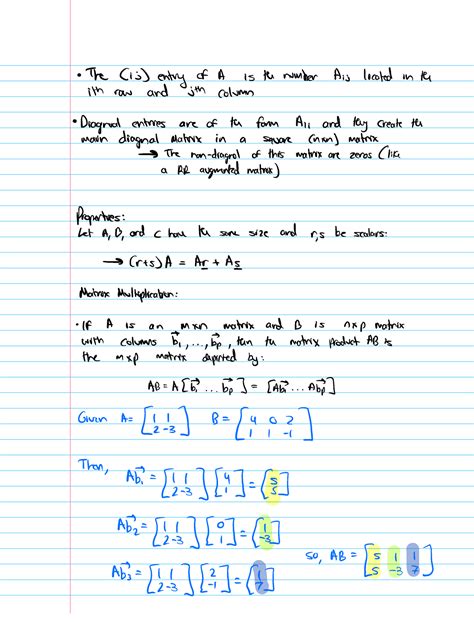 • The (i,j) entry of A is the number Aij located in the
ith row and jth column
• Diagonal entries are of the form A11 and they create the
main diagonal matrix in a square (nxn) matrix
→ The non-diagonal of this matrix are zeros (like
a RR augmented matrix)
Properties:
Let A, B, and C have the same size and r,s be scalars:
→ (r+s)A = Ar + As
Matrix Multiplication:
• If A is an mxn matrix and B is nxp matrix
with columns b1, ..., bp, then the matrix product AB is
the mxp matrix depicted by:
AB = A[b1 ... bp] = [Ab1 ... Abp]
Given A = [1 1 B = [4 0 2
2 -3] 1 1 -1]
Then,
Ab1 = [1 1 [4 = [5
2 -3] 1] 5]
Ab2 = [1 1 [0 = [1
2 -3] 1] -3]
Ab3 = [1 1 [2 = [1
2 -3] -1] 7]
So, AB = [5 1 1
5 -3 7]